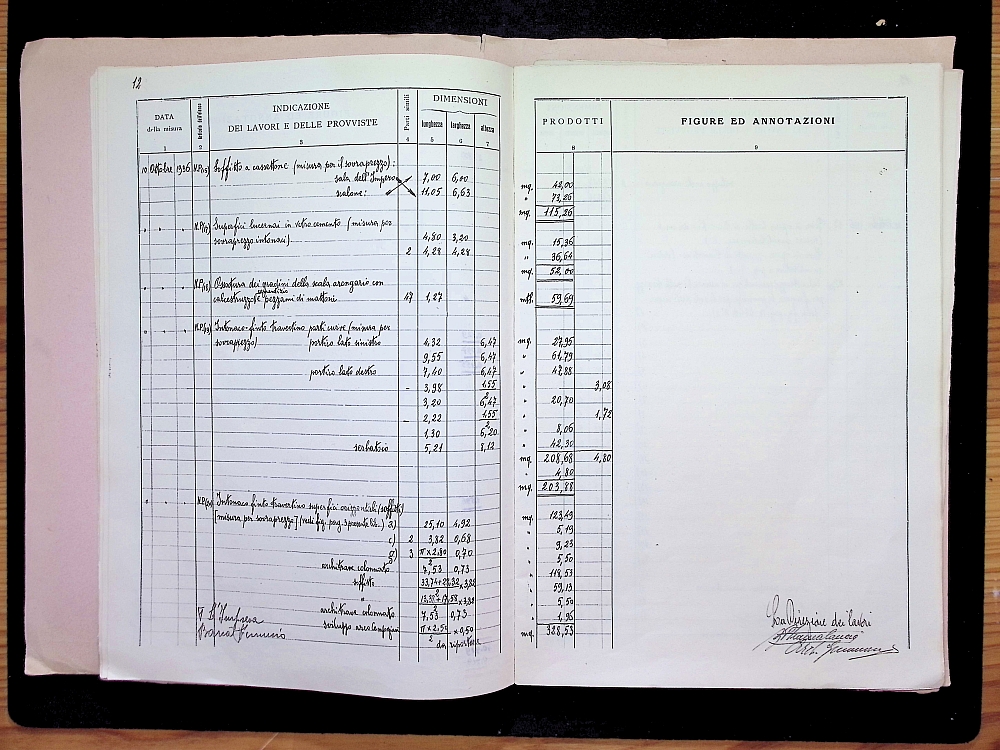 12
DATA
della misura
INDICAZIONE
DEI LAVORI E DELLE PROVVISTE
Parti simili
DIMENSIONI
lunghezza larghezza altezza
PRODOTTI
FIGURE ED ANNOTAZIONI
1 2 3 4 5 6 7 8 9
10 Ottobre 1936 N.P.(15) Soffitto a cassettone (misura per il sovraprezzo):
sala dell'Impero 7,00 6,00 mq. 42,00
scalone: 11,05 6,63 " 73,26
mq. 115,26
" " " N.P.(17) Superfici lucernai in vetro cemento (misura per
sovraprezzo intonaci) 4,80 3,20 mq. 15,36
2 4,28 4,28 " 36,64
mq. 52,00
" " " N.P.(18) Ossatura dei gradini della scala arengario con
calcestruzzo e pezzami di mattoni 47 1,27 mtl. 59,69
" " " N.P.(19) Intonaco finto travertino parti curve (misura per
sovraprezzo) portico lato sinistro 4,32 6,47 mq. 27,95
9,55 6,47 " 61,79
portico lato destro 7,40 6,47 " 47,88
- 3,98 1,55 " 3,08
2
3,20 6,47 " 20,70
- 2,22 1,55 " 1,72
2
1,30 6,20 " 8,06
serbatoio 5,21 8,12 " 42,30
mq. 208,68 4,80
" 4,80
mq. 203,88
" " " Intonaco finto travertino superfici orizzontali (soffitti)
[misura per sovraprezzo] (vedi fig. pag. 3 presente lib.) a) 25,10 4,92 mq. 123,49
c) 2 3,82 0,68 " 5,19
g) 3 π × 2,80 0,70 " 9,23
2
architrave colonnato 7,53 0,73 " 5,50
soffitto 33,74+27,32 × 3,82 " 118,53
2
" 13,38+17,58 × 3,82 " 59,13
2
architrave colonnato 7,53 0,73 " 5,50
π × 2,50 × 0,50 " 1,96
2
da riportare mq. 328,53
L'Impresa
La Direzione dei lavori